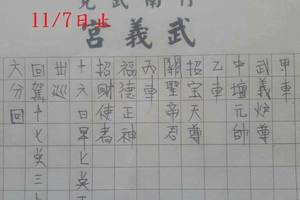 竹南武覓
11/7日止
武義宮
甲車
武義炉尊
乙車
中壇元帥
招宝天尊
關聖帝君
丙車
福德正神
招財使者
十六日早七
廿巡
回駕十七
六分回